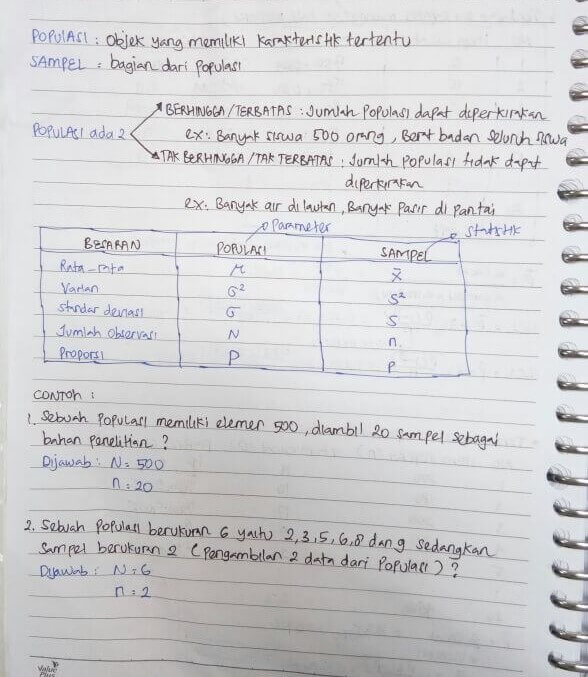 POPULASI : Objek yang memiliki karakteristik tertentu
SAMPEL : bagian dari populasi
BERHINGGA/TERBATAS : Jumlah populasi dapat diperkirakan
POPULASI ada 2
ex: Banyak siswa 500 orang, Berat badan seluruh siswa
TAK BERHINGGA/TAK TERBATAS : Jumlah populasi tidak dapat
diperkirakan
ex: Banyak air di lautan, Banyak Pasir di Pantai
Parameter Statistik
BESARAN POPULASI SAMPEL
Rata-rata μ x̄
Varian σ² s²
Standar deviasi σ s
Jumlah Observasi N n
Proporsi P p
CONTOH :
1. Sebuah populasi memiliki elemen 500, diambil 20 sampel sebagai
bahan penelitian ?
Dijawab : N = 500
n = 20
2. Sebuah populasi berukuran 6 yaitu 2,3,5,6,8 dan 9 sedangkan
sampel berukuran 2 (pengambilan 2 data dari populasi) ?
Dijawab : N = 6
n = 2
Value
Plus